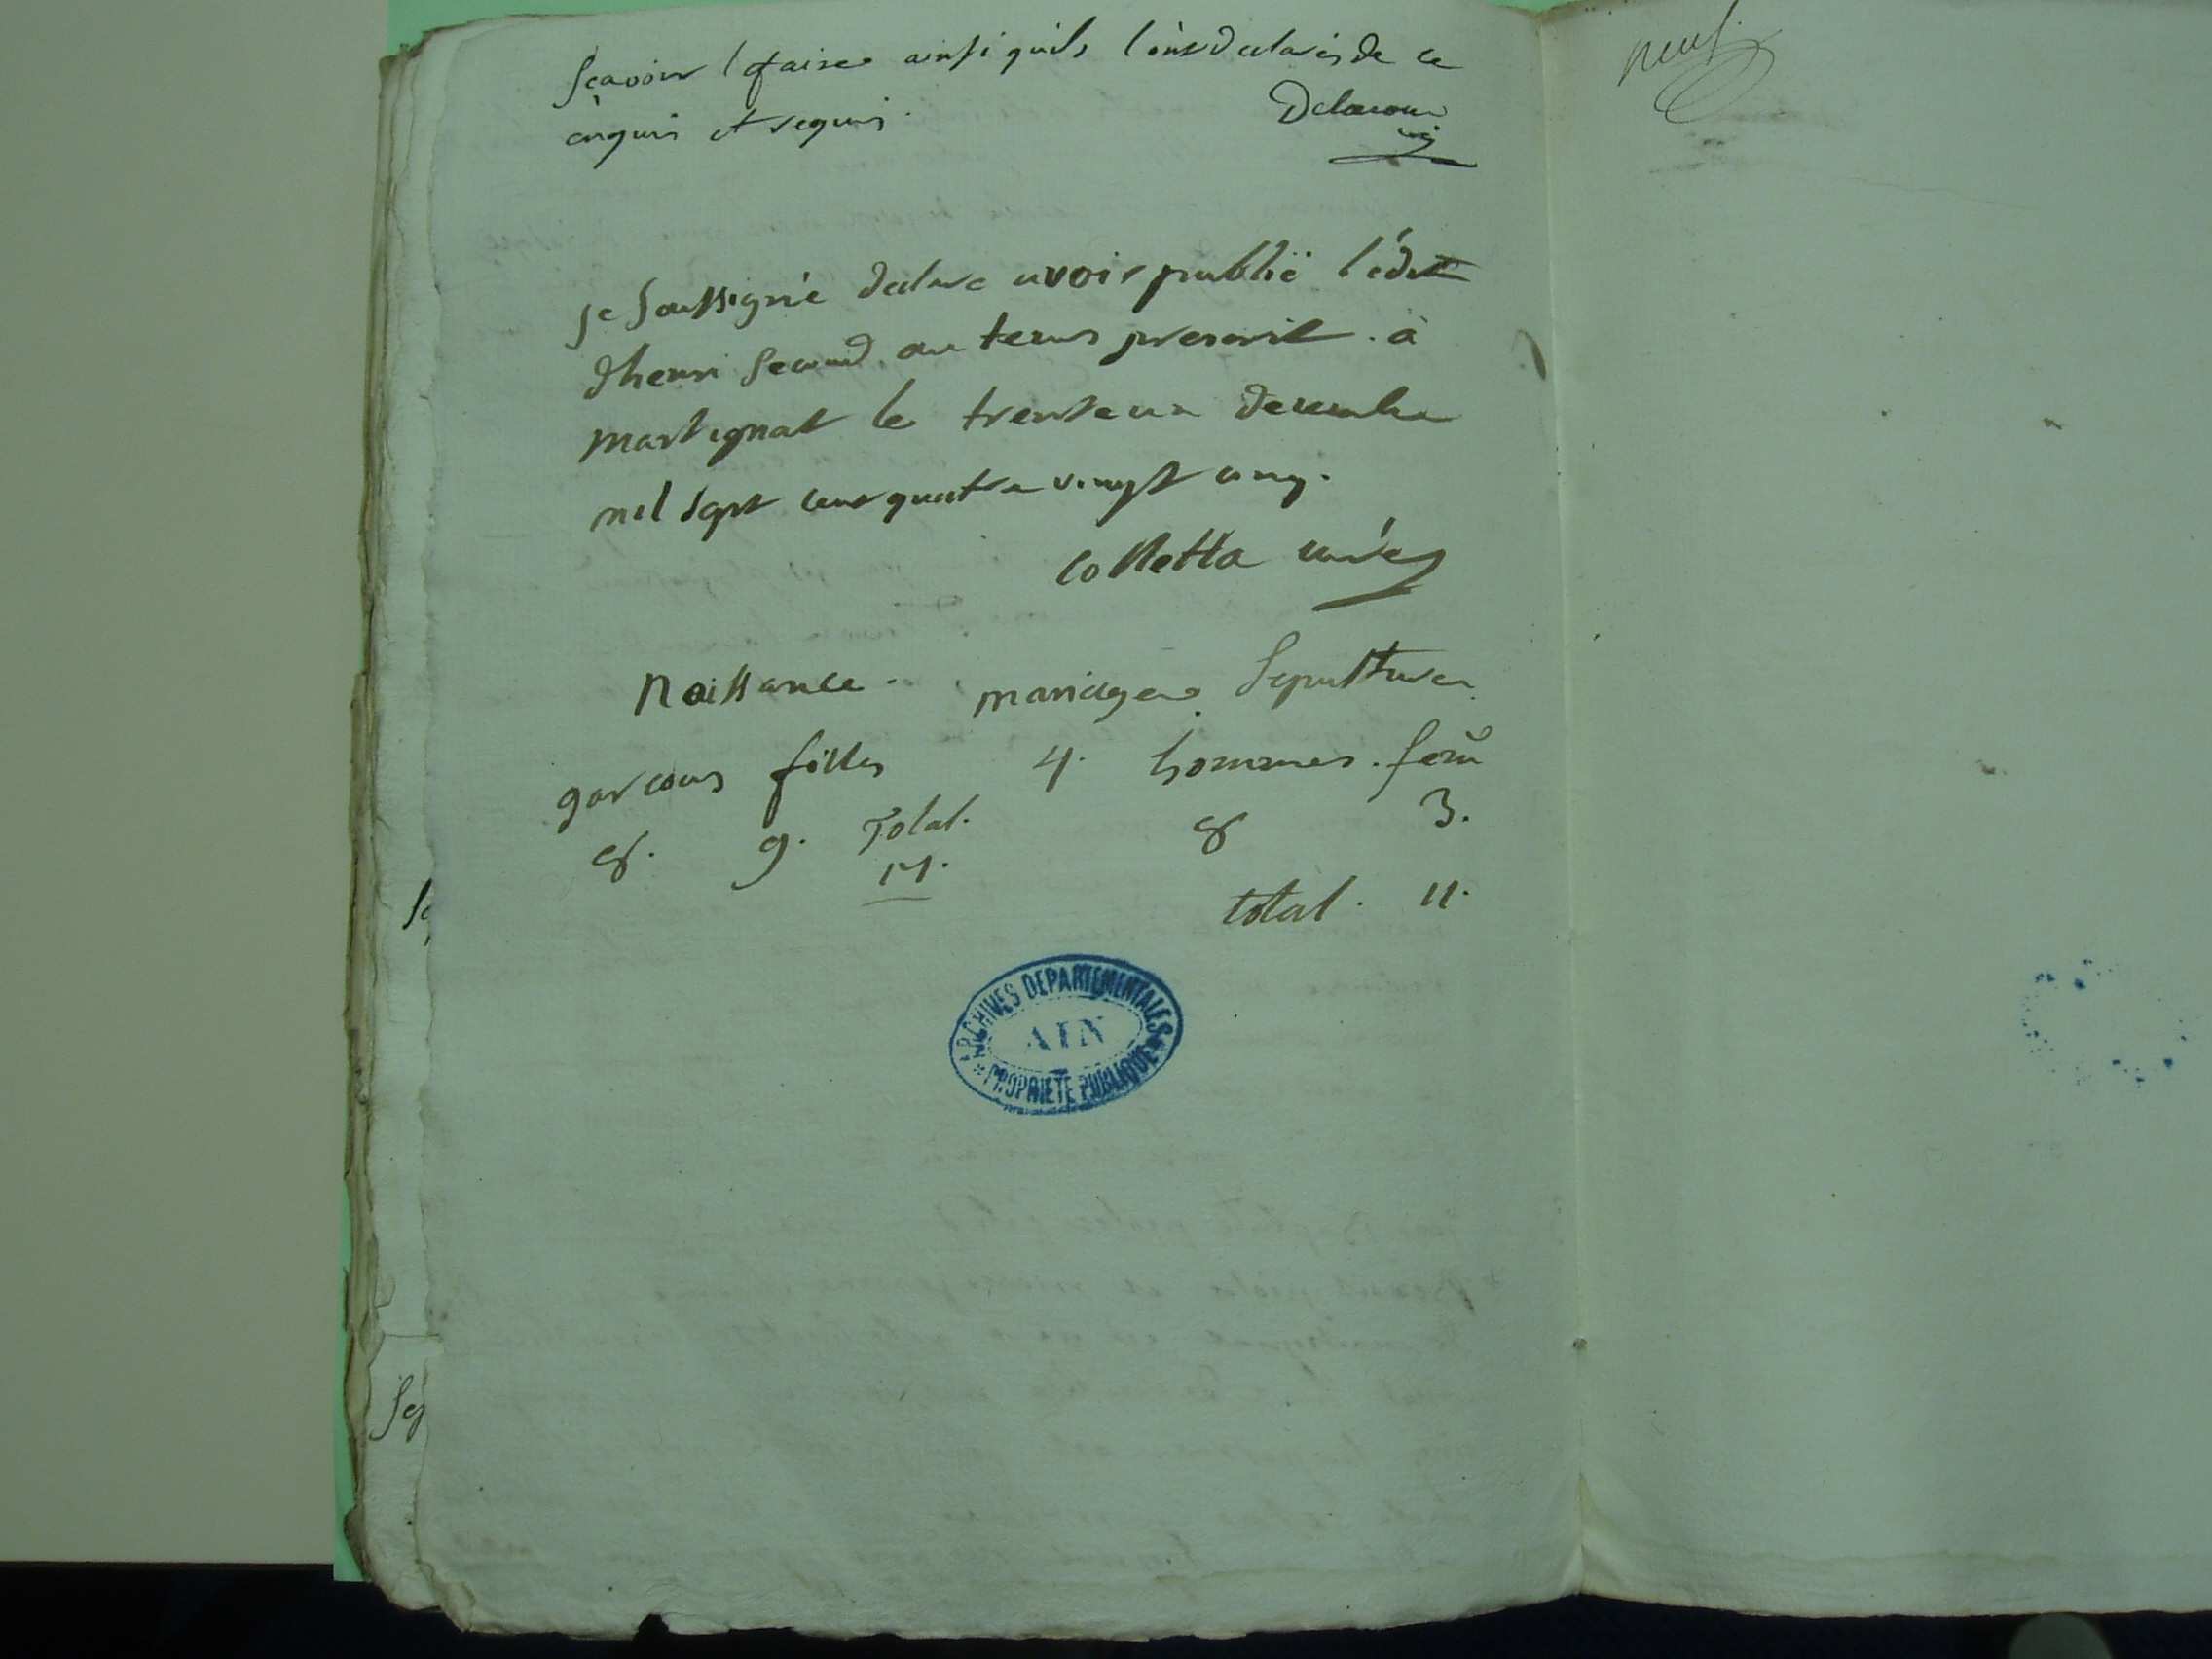 sçavoir le faire ainsi quils l'ont declarés de ce
enquis et requis. Delacour
je soussigné declare avoir publié l'édit
d'henri second au tems prescrit. à
martignat le trente un decembre
mil sept cent quatre vingt cinq.
Colletta curé
Naissance. mariages. Sepultures
garcons filles 4. hommes. fem
8. 9. Total. 8 3.
17.
total. 11.
ARCHIVES DEPARTEMENTALES
AIN
PROPRIETE PUBLIQUE
neuf